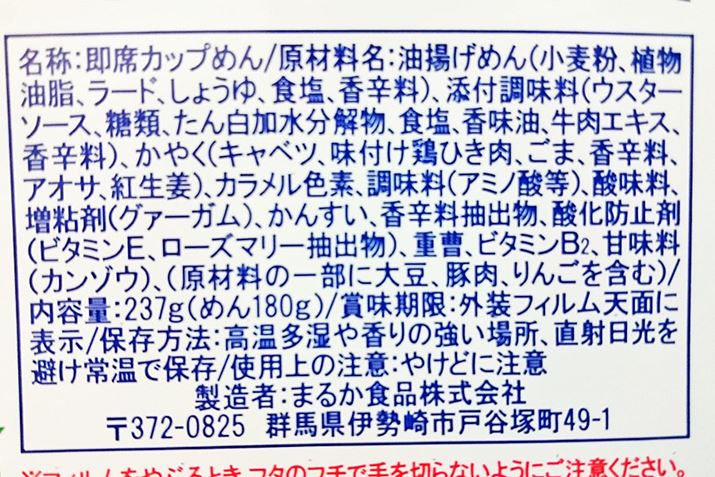 名称:即席カップめん/原材料名:油揚げめん(小麦粉、植物
油脂、ラード、しょうゆ、食塩、香辛料)、添付調味料(ウスター
ソース、糖類、たん白加水分解物、食塩、香味油、牛肉エキス、
香辛料)、かやく(キャベツ、味付け鶏ひき肉、ごま、香辛料、
アオサ、紅生姜)、カラメル色素、調味料(アミノ酸等)、酸味料、
増粘剤(グァーガム)、かんすい、香辛料抽出物、酸化防止剤
(ビタミンE、ローズマリー抽出物)、重曹、ビタミンB2、甘味料
(カンゾウ)、(原材料の一部に大豆、豚肉、りんごを含む)/
内容量:237g(めん180g)/賞味期限:外装フィルム天面に
表示/保存方法:高温多湿や香りの強い場所、直射日光を
避け常温で保存/使用上の注意:やけどに注意
製造者:まるか食品株式会社
〒372-0825 群馬県伊勢崎市戸谷塚町49-1
※フィルムをやぶるとき、フタのフチで手を切らないようにご注意ください。